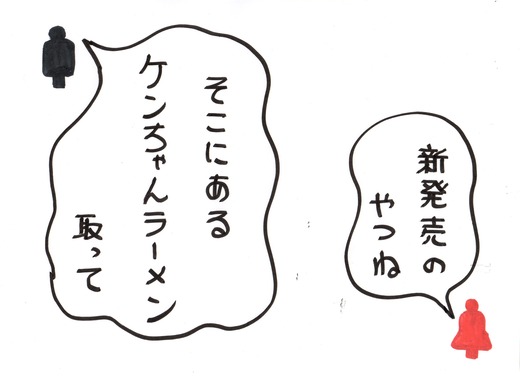 そこにある
ケンちゃんラーメン
取って
新発売の
やつね